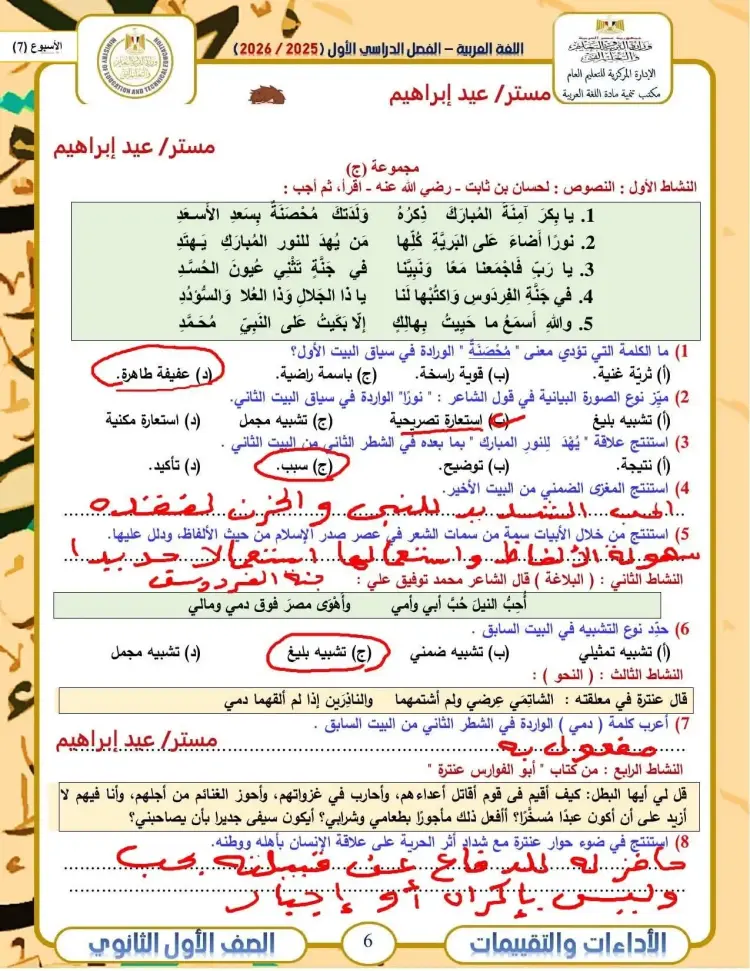 الأسبوع (7)
اللغة العربية – الفصل الدراسي الأول (2025 / 2026)
الإدارة المركزية للتعليم العام
مكتب تنمية مادة اللغة العربية
MINISTRY OF EDUCATION AND TECHNICAL EDUCATION
مستر/ عيد إبراهيم
مستر/ عيد إبراهيم
مجموعة (ج)
النشاط الأول : النصوص : لحسان بن ثابت - رضي الله عنه - اقرأ، ثم أجب :
1. يا بِكرَ آمِنَةَ المُبارَكَ ذِكرُهُ وَلَدَتكَ مُحْصَنَةٌ بِسَعدِ الأَسعَدِ
2. نورًا أَضاءَ عَلى البَرِيَّةِ كُلِّها مَن يُهدَ للنورِ المُبارَكِ يَهتَدِ
3. يا رَبِّ فَاجْمَعنا مَعًا وَنَبِيَّنا في جَنَّةٍ تَثْنِي عُيونَ الحُسَّدِ
4. في جَنَّةِ الفِردَوسِ وَاكتُبْها لَنا يا ذا الجَلالِ وَذا العُلا وَالسُؤْدُدِ
5. واللهِ أَسمَعُ ما حَيِيتُ بِهالِكٍ إلّا بَكَيتُ عَلى النَبِيِّ مُحَمَّدِ
1) ما الكلمة التي تؤدي معنى " مُحْصَنَةٌ " الواردة في سياق البيت الأول؟
(أ) ثريّة غنية. (ب) قوية راسخة. (ج) باسمة راضية. (د) عفيفة طاهرة.
2) ميّز نوع الصورة البيانية في قول الشاعر : " نورًا" الواردة في سياق البيت الثاني.
(أ) تشبيه بليغ (ب) إستعارة تصريحية (ج) تشبيه مجمل (د) استعارة مكنية
3) استنتج علاقة " يُهْدَ لِلنورِ المبارك " بما بعده في الشطر الثاني من البيت الثاني .
(أ) نتيجة. (ب) توضيح. (ج) سبب. (د) تأكيد.
4) استنتج المغزى الضمني من البيت الأخير.
الحب الشديد للنبي والحزن لفقده
5) استنتج من خلال الأبيات سِمة من سمات الشعر في عصر صدر الإسلام من حيث الألفاظ، ودلل عليها.
سهولة الألفاظ واستعمالها استعمالا جديدا
النشاط الثاني : ( البلاغة ) قال الشاعر محمد توفيق علي :
جنة الفردوس
أُحِبُّ النيلَ حُبَّ أبي وأمي وأهْوَى مصرَ فوق دمي ومالي
6) حدِّد نوع التشبيه في البيت السابق .
(أ) تشبيه تمثيلي (ب) تشبيه ضمني (ج) تشبيه بليغ (د) تشبيه مجمل
النشاط الثالث : ( النحو ) :
قال عنترة في معلقته : الشاتِمَي عِرضي ولم أشتمهما والناذِرَين إذا لم ألقهما دمي
7) أعرب كلمة ( دمي ) الواردة في الشطر الثاني من البيت السابق .
مفعول به
مستر/ عيد إبراهيم
النشاط الرابع : من كتاب " أبو الفوارس عنترة "
قل لي أيها البطل: كيف أقيم فى قوم أقاتل أعداءهم، وأحارب في غزواتهم، وأحوز الغنائم من أجلهم، وأنا فيهم لا
أزيد على أن أكون عبدًا مُسخَّرًا؟ أأفعل ذلك مأجورًا بطعامي وشرابي؟ أيكون سيفى جديرا بأن يصاحبني؟
8) استنتج في ضوء حوار عنترة مع شداد أثر الحرية على علاقة الإنسان بأهله ووطنه.
حافز له للدفاع عن قبيلته بحب
وليس بإكراه أو إجبار
الأداءات والتقييمات
6
الصف الأول الثانوي